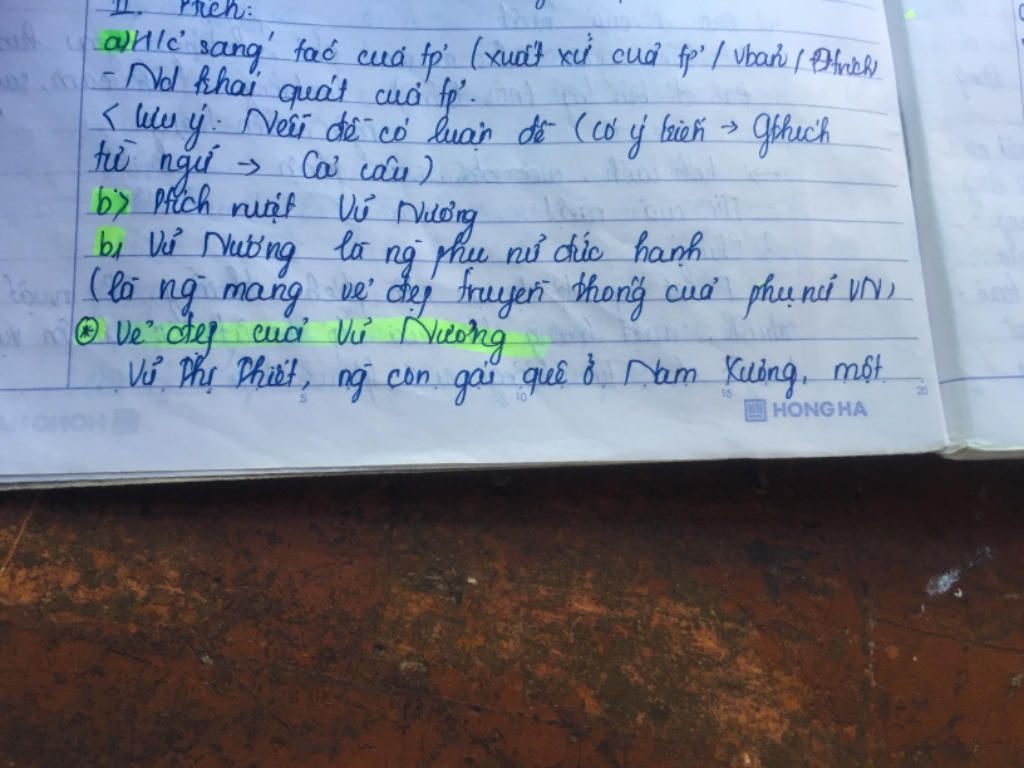 II. Ptích:
a) H/c sáng tác của tp (xuất xứ của tp / vbản / Đtrích
- Nd khái quát của tp.
< lưu ý: Nếu đề có luận đề (có ý kiến → Gthích
từ ngữ → Cả câu)
b) Ptích nvật Vũ Nương
b1 Vũ Nương là ng phụ nữ đức hạnh
(là ng mang vẻ đẹp truyền thống của phụ nữ VN)
* Vẻ đẹp của Vũ Nương
Vũ Thị Thiết, ng con gái quê ở Nam Xương, một
5 10 15 20
HONG HA